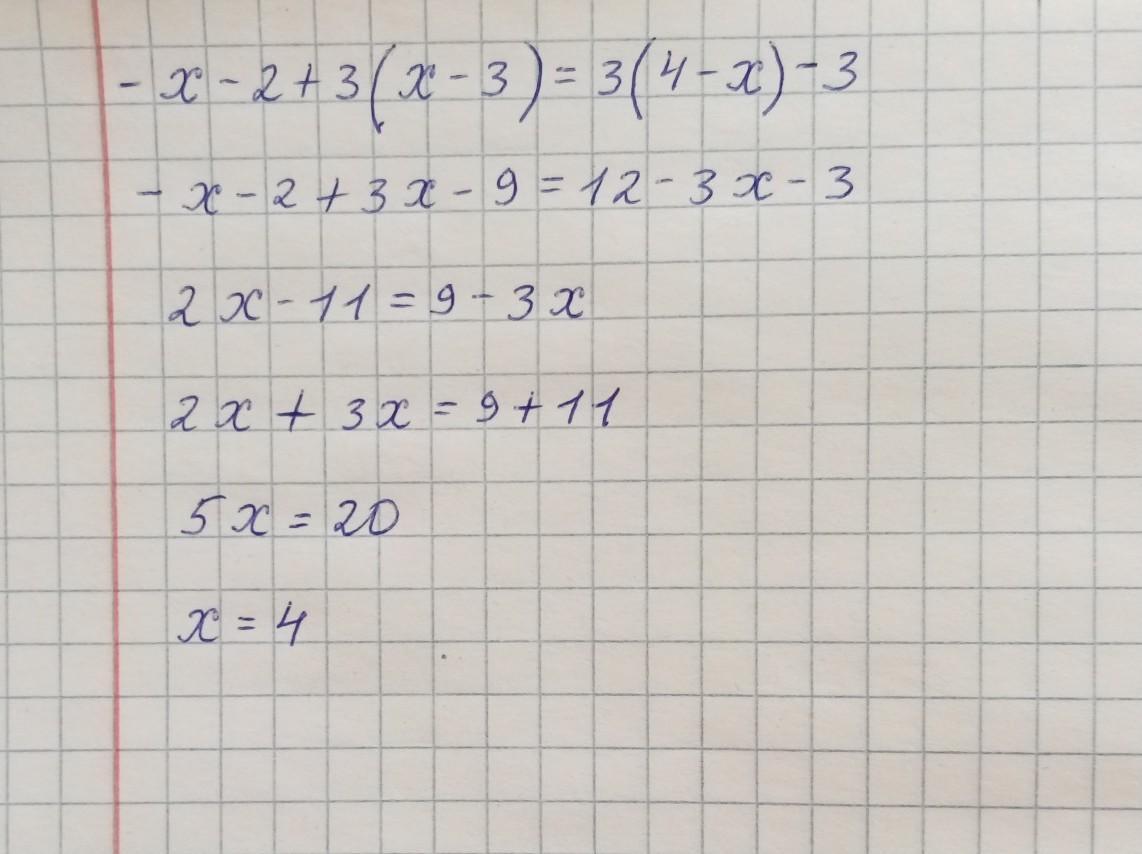 - x - 2 + 3(x - 3) = 3(4 - x) - 3
- x - 2 + 3x - 9 = 12 - 3x - 3
2x - 11 = 9 - 3x
2x + 3x = 9 + 11
5x = 20
x = 4